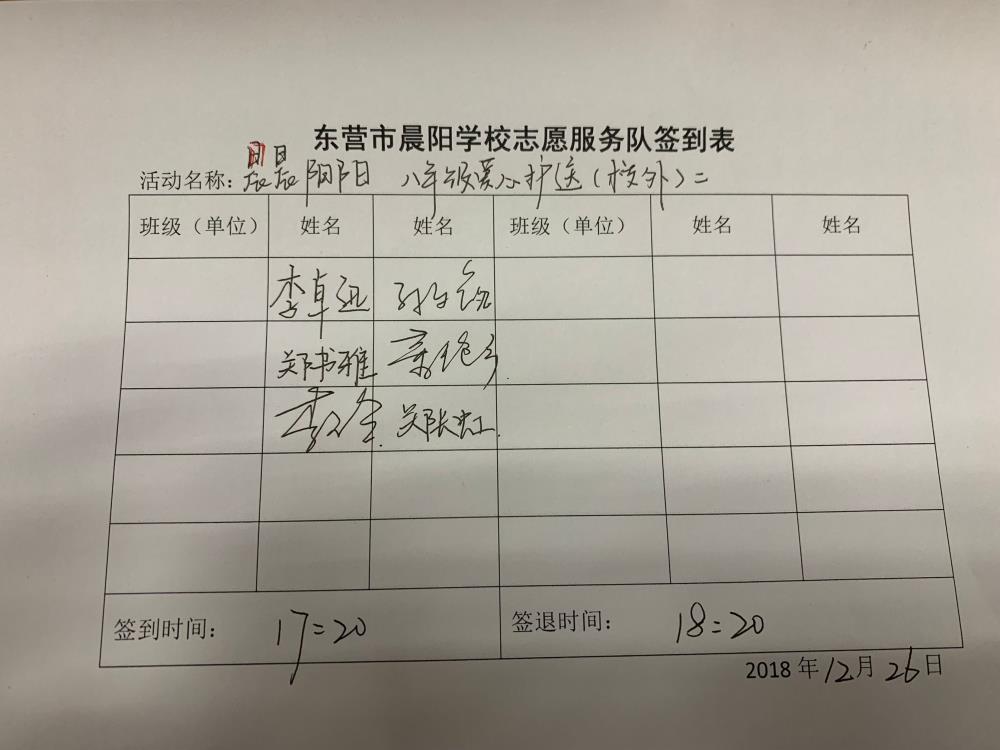 东营市晨阳学校志愿服务队签到表
活动名称：晨晨阳阳 八年级爱心护送（校外）二
班级（单位） 姓名 姓名 班级（单位） 姓名 姓名
李卓迅
郑书雅
李全 郑长虹
签到时间： 17:20 签退时间： 18:20
2018年12月26日